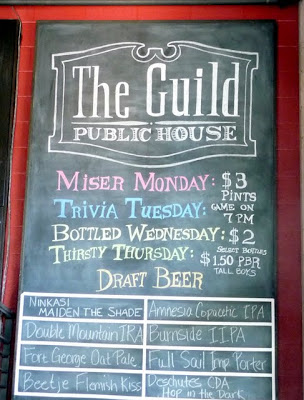 The Guild
PUBLIC HOUSE
MISER MONDAY: $3 PINTS
TRIVIA TUESDAY: GAME ON 7 PM
BOTTLED WEDNESDAY: $2 SELECT BOTTLES
THIRSTY THURSDAY: $1.50 PBR TALL BOYS
DRAFT BEER
NINKASI MAIDEN THE SHADE
Amnesia Copacetic IPA
Double Mountain IRA
Burnside IIPA
Fort George Oat Pale
Full Sail Imp Porter
Beetje Flemish Kiss
Deschutes CDA Hop in the Dark